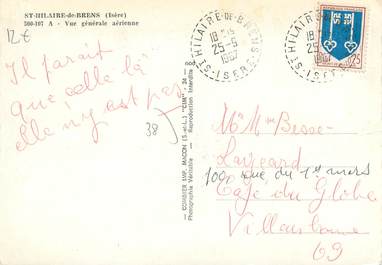 ST-HILAIRE-de-BRENS (Isère)
300-107 A - Vue générale aérienne
12€
Il parait
que celle là
elle n'y est pas
38
COMBIER IMP. MACON (S.-et-L.) "CIM"
Photographie Véritable - Reproduction Interdite
ST HILAIRE-DE-BRENS
18H15
25-5
1967
ISERE
0,25
Mr Mme Besse
100 rue du 1er mars
Café du Globe
Villeurbanne
69